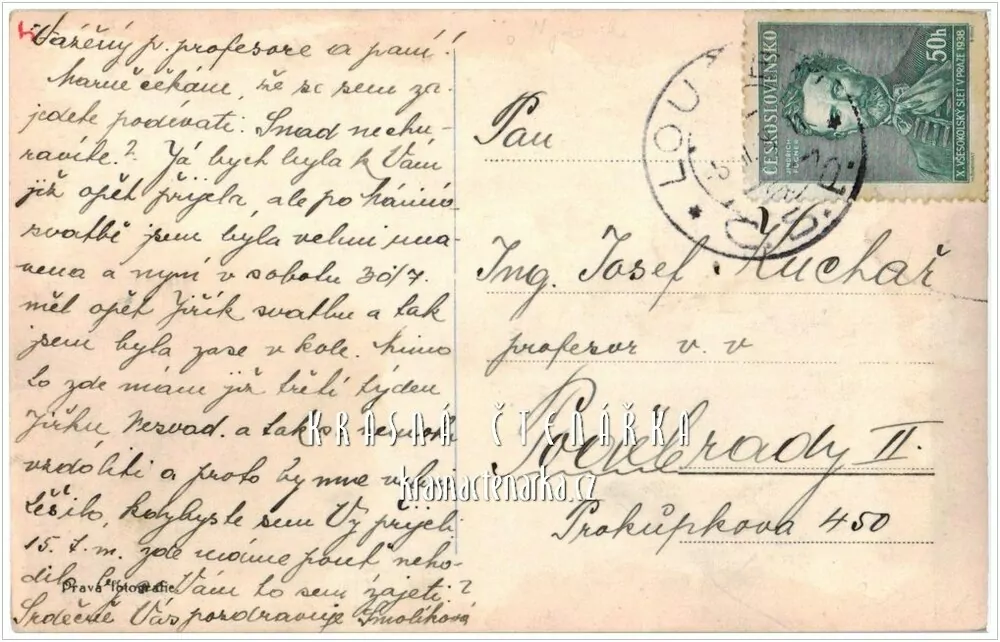 Vážený p. profesore a paní!
Marně čekám, že se sem za-
jedete podívati. Snad nechu-
ravíte? Já bych byla k Vám
již opět přijela, ale po
svatbě jsem byla velmi una-
vena a nyní v sobotu 30/7.
měl opět Jiřík svatbu a tak
jsem byla zase v kole. Mimo
to zde mám již třetí týden
Jirku Nesvad. a tak se
vzdáliti a proto by mne velmi
těšilo, kdybyste sem Vy přijeli
15. t. m. zde máme pouť neho-
dilo by se Vám to sem zajeti?
Srdečně Vás pozdravuje Smolíková
Pravá fotografie.
LOU
ČESKOSLOVENSKO
50h
JINDŘICH
FÜGNER
X. VŠESOKOLSKÝ SLET V PRAZE 1938
Pan
Ing. Josef Kuchař
profesor v. v
Poděbrady II.
Prokůpkova 450
KRÁSNÁ ČTENÁŘKA
krasnactenarka.cz